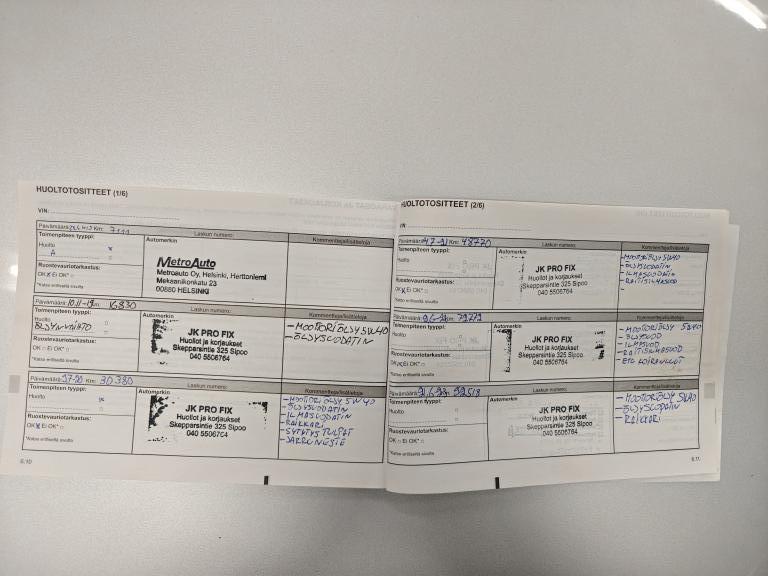 HUOLTOTOSITTEET (1/6)
VIN:
Päivämäärä: Km: 7111
Laskun numero:
Kommentteja/lisätietoja
Toimenpiteen tyyppi:
Huolto x
A
Automerkin
MetroAuto
Metroauto Oy, Helsinki, Herttoniemi
Mekaanikonkatu 23
00880 HELSINKI
Ruostevauriotarkastus:
OK x Ei OK*
*Katso erilliseltä sivulta
Päivämäärä: 10.11-19 Km: 16830
Laskun numero:
Kommentteja/lisätietoja
Toimenpiteen tyyppi:
Huolto
ÖLJYNVAIHTO
Automerkin
JK PRO FIX
Huollot ja korjaukset
Skepparsintie 325 Sipoo
040 5506764
- MOOTORIÖLJY 5W40
- ÖLJYSUODATIN
Ruostevauriotarkastus:
OK Ei OK*
*Katso erilliseltä sivulta
Päivämäärä: Km: 30 380
Laskun numero:
Kommentteja/lisätietoja
Toimenpiteen tyyppi:
Huolto x
Automerkin
JK PRO FIX
Huollot ja korjaukset
Skepparsintie 325 Sipoo
040 5506764
- MOOTORIÖLJY 5W40
- ÖLJYSUODATIN
- ILMASUODATIN
- RAIKKARI
- SYTYTYSTULPAT
- JARRUNESTE
Ruostevauriotarkastus:
OK x Ei OK*
*Katso erilliseltä sivulta
6.10
HUOLTOTOSITTEET (2/6)
Päivämäärä: Km: 48770
Laskun numero:
Kommentteja/lisätietoja
Toimenpiteen tyyppi:
Huolto
Automerkin
JK PRO FIX
Huollot ja korjaukset
Skepparsintie 325 Sipoo
040 5506764
- MOOTORIÖLJY 5W40
- ÖLJYSUODATIN
- ILMASUODATIN
- RAITISILMASUOD
-
Ruostevauriotarkastus:
OK x Ei OK*
*Katso erilliseltä sivulta
Päivämäärä: Km:
Laskun numero:
Kommentteja/lisätietoja
Toimenpiteen tyyppi:
Huolto
Automerkin
JK PRO FIX
Huollot ja korjaukset
Skepparsintie 325 Sipoo
040 5506764
- MOOTORIÖLJY 5W40
- ÖLJYSUOD
- ILMASUOD
- RAITISILMASUOD
- ETU KOIRANLUUT
Ruostevauriotarkastus:
OK x Ei OK*
*Katso erilliseltä sivulta
Päivämäärä: Km: 92518
Laskun numero:
Kommentteja/lisätietoja
Toimenpiteen tyyppi:
Huolto
Automerkin
JK PRO FIX
Huollot ja korjaukset
Skepparsintie 325 Sipoo
040 5506764
- MOOTORIÖLJY 5W40
- ÖLJYSUODATIN
- RAIKKARI
Ruostevauriotarkastus:
OK Ei OK*
*Katso erilliseltä sivulta
6.11